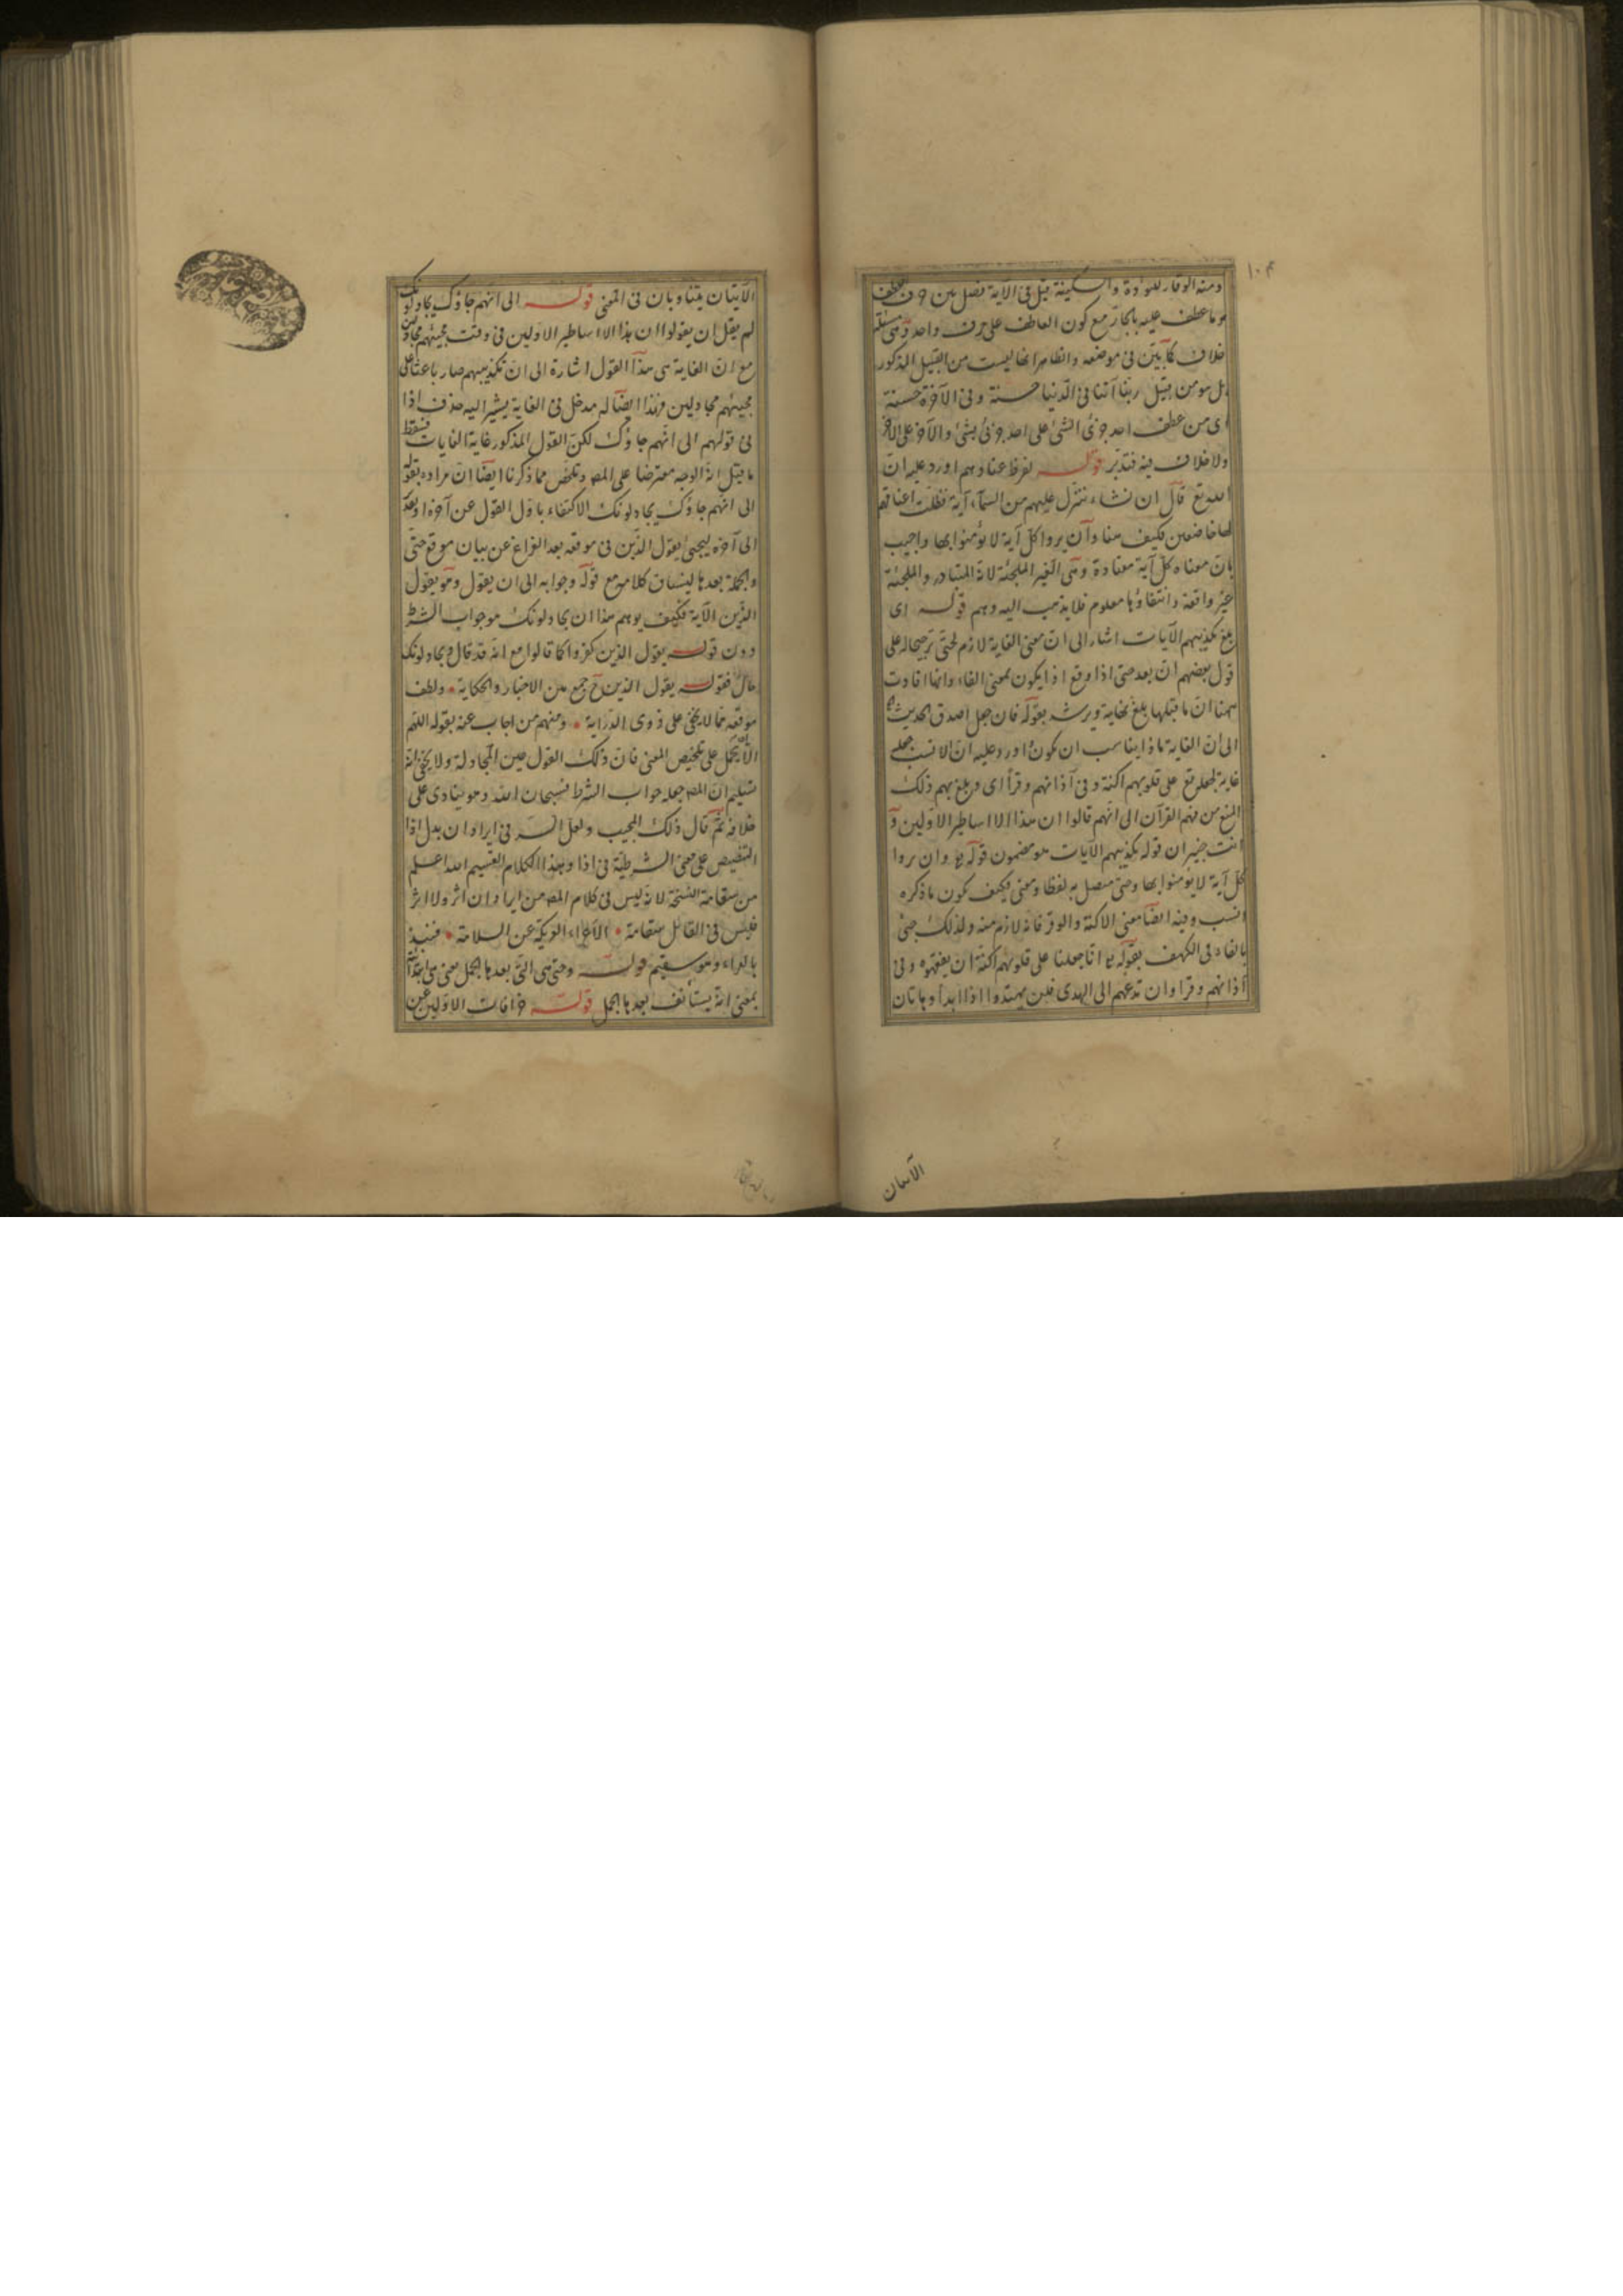 ١٠٤
ومنه الوقار للتؤدة والسكينة قيل فى الآية فصل بين حرف العطف
وما عطف عليه بالجار مع كون العاطف على حرف واحد وهى مسئلة
خلاف كما بيّن فى موضعه والظاهر انها ليست من القبيل المذكور
بل هو من قبيل ربنا آتنا فى الدنيا حسنة وفى الآخرة حسنة
اى من عطف احد جزئى الشئ على احد جزئى شئ والآخر على الآخر
ولا خلاف فيه فتدبّر قوله لفرط عنادهم اورد عليه انّ
الله تع قال ان نشاء ننزّل عليهم من السمآء آية فظلت اعناقهم
لها خاضعين فكيف هذا وان يروا كلّ آية لا يؤمنوا بها واجيب
بانّ معناه كلّ آية معتادة وهى الغير الملجئة لانه المتبادر والملجئة
غير واقعة وانتفاؤها معلوم فلا يذهب اليه وهم قوله اى
بلغ تكذيبهم الآيات اشار الى انّ معنى الغاية لازم لحتى ترجيحا له على
قول بعضهم ان بعد حتى اذا وقع اذا يكون بمعنى الفاء وانما افادت
ههنا ان ما قبلها بلغ نهاية ويرشد بقوله فان جعل اصدق الحديث
الى ان الغاية ماذا يناسب ان يكون اورد عليه ان الانسب جعله
غاية لجعله تع على قلوبهم اكنة وفى آذانهم وقرأ اى وبلغ بهم ذلك
المنع من فهم القرآن الى انّهم قالوا ان هذا الا اساطير الاولين و
انت خبير ان قوله تكذيبهم الآيات هو مضمون قوله وان يروا
كلّ آية لا يؤمنوا بها وحتى متصل به لفظا ومعنى فكيف يكون ما ذكره
انسب وفيه ايضا معنى الاكنة والوقر فانه لازم منه ولذلك جئ
بالفاء فى الكهف بقوله انا جعلنا على قلوبهم اكنة ان يفقهوه وفى
آذانهم وقرا وان تدعهم الى الهدى فلن يهتدوا اذا ابدا وهاتان
الآيتان
الآيتان يتناوبان فى المعنى قوله الى انهم جاؤك يجادلونك
لم يقل ان يقولوا ان هذا الا اساطير الاولين فى وقت مجيئهم مجادلين
مع ان الغاية هى هذا القول اشارة الى ان تكذيبهم صار باعثا على
مجيئهم مجادلين فهذا ايضا له مدخل فى الغاية يشير اليه حذف اذا
فى قولهم الى انهم جاؤك لكن القول المذكور غاية الغايات فسقط
ما قيل انه الوجه معترضا على المص وتلخص مما ذكرنا ايضا ان مراده بقوله
الى انهم جاؤك يجادلونك الاكتفاء باول القول عن آخره
الى آخره ليجئ يقول الذين فى موقعه بعد الفراغ عن بيان موقع حتى
والجملة بعدها لينساق كلامه مع قوله وجوابه الى ان يقول وهو يقول
الذين الآية فكيف يوهم هذا ان يجادلونك هو جواب الشرط
دون قوله يقول الذين كفروا كما قالوا مع انه قد قال ويجادلونك
حال فقوله يقول الذين ح جمع بين الاخبار والحكاية ولطف
موقعه مما لا يخفى على ذوى الدراية ومنهم من اجاب عنه بقوله اللهم
الا ان يحمل على تلخيص المعنى فان ذلك القول عين المجادلة ولا يخفى انه
تسليم ان المص جعله جواب الشرط فسبحان الله وهو ينادى على
خلافه ثمّ قال ذلك المجيب ولعل السر فى ايراد ان بدل اذا
التنصيص على معنى الشرطية فى اذا وبهذا الكلام السقيم الله اعلم
من سقامة النسخة لانه ليس فى كلام المص من ايراد ان اثر ولا اثر
فليس فى القائل سقامة العرية عن السلامة فنبذ
بالعراء وهو سقيم قوله وحتى هى التى بعدها الجمل معنى هى ابتدائية
بمعنى انه يستأنف بعدها الجمل قوله خرافات الاولين عين